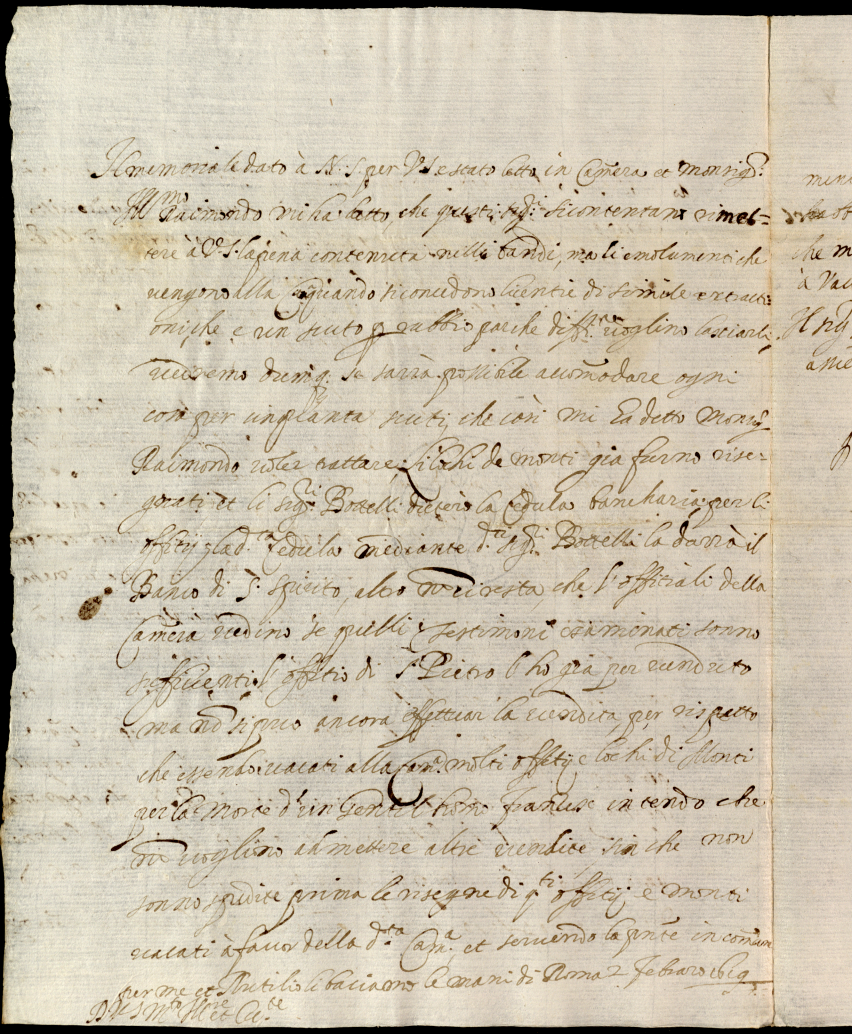 Il memoriale dato à N. S. per VS e stato letto in Camera et monsig.r
Raimondo mi ha detto, che questi si contentano rimet=
tere à V.S. la pena contenuta nelli bandi, ma li emolumenti che
vengono alla quando si concedono licentie di simile extracti
oni, che e un scuto p rubbio par che voglino lasciarli,
vedremo dunq. se sarrà possibile accomodare ogni
cosa per cinquanta scuti, che così mi ha detto Monsig.r
Raimondo voler trattare, li lochi de monti già furno rise=
gnati et li sig.ri Bottelli diedero la cedula bancharia per li
offitij la d.ta cedula mediante d.ti sig.ri Bottelli la darrà il
Banco di S. Spirito, altro ci resta, che l'offitiali della
Camera vedino se quelli testimoni examinati sonno
sufficienti l'offitio di S. Pietro l'ho già per venduto
ma nō si può ancora effettuar la vendita per rispetto
che essendo vacati alla Cam.a molti offitij e lochi di Monti
per la morte d'un gentilhomo franzese intendo che
nō voglino admettere altre vendite sin che non
sonno spedite prima le risegne di q.ti offitij e monti
vacati à favor della d.ta Cam.a, et servendo la pnte in comun
per me et Rutilio li baciamo le mani di Roma 2 febraro
D V S